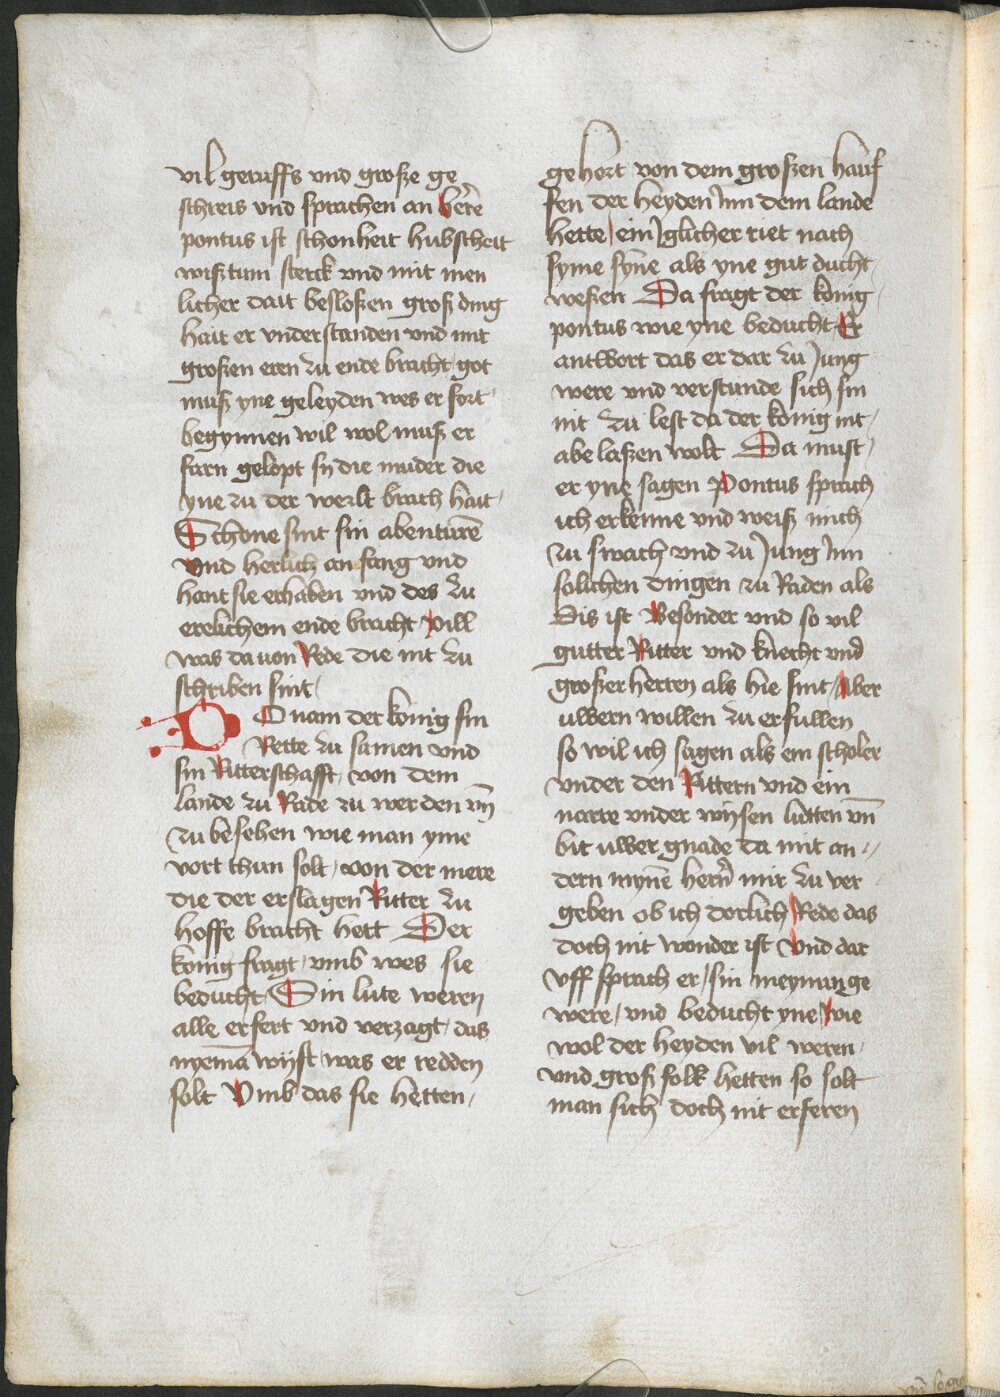 vil geruffs vnd große ge
schreis vnd sprachen an here
pontus ist schonheit hubscheit
wißtum sterck vnd mit men
licher dait besloßen groß ding
hait er vnderstanden vnd mit
großen eren zu ende bracht got
muß yne geleyden wes er fort
begynnen wil wol muß er
farn gelopt sy die muder die
yne zu der werlt brach hait
Schone sint sin abenturē
vnd herlich an fang vnd
hant sie erhaben vnd des zu
erelichem ende bracht vill
was da von Rede die nit zu
schriben sint
DO nam der konig sin
Rette zu samen vnd
sin Ritterschafft von dem
lande zu Rade zu werden vn̄
zu besehen wie man yme
vort thun solt von der mere
die der erslagen Ritter zu
hoffe bracht hett Der
konig fragt vmb wes sie
beducht Sin lute weren
alle erfert vnd verzagt das
nyemā wyst was er redden
solt Vmb das sie hetten
gehort von dem großen hauf
fen der heyden Jnn dem lande
hette ein Jglicher riet nach
syme syne als yne gut ducht
weßen Da fragt der konig
pontus wie yne beducht Er
antwort das er dar zu Jung
were vnd verstunde sich sin
nit zu lest da der konig nit
abe laßen wolt Da must
er yne sagen Pontus sprach
ich erkenne vnd weiß mich
zu swach vnd zu Jung Jnn
solichen dingen zu Raden als
Dis ist Besonder vnd so vil
gutter Ritter vnd knecht vnd
großer herren als hie sint Aber
uwern willen zu erfullen
so wil ich sagen als ein scholer
vnder den Rittern vnd ein
narre vnder wysen lutten vn̄
bit uwer gnade da mit an
dern mynē hern mir zu ver
geben ob ich dorlich Rede das
doch nit wonder ist Vnd dar
vff sprach er sin meynunge
were vnd beducht yne wie
wol der heyden vil weren
vnd groß folk hetten so solt
man sich doch nit erferen